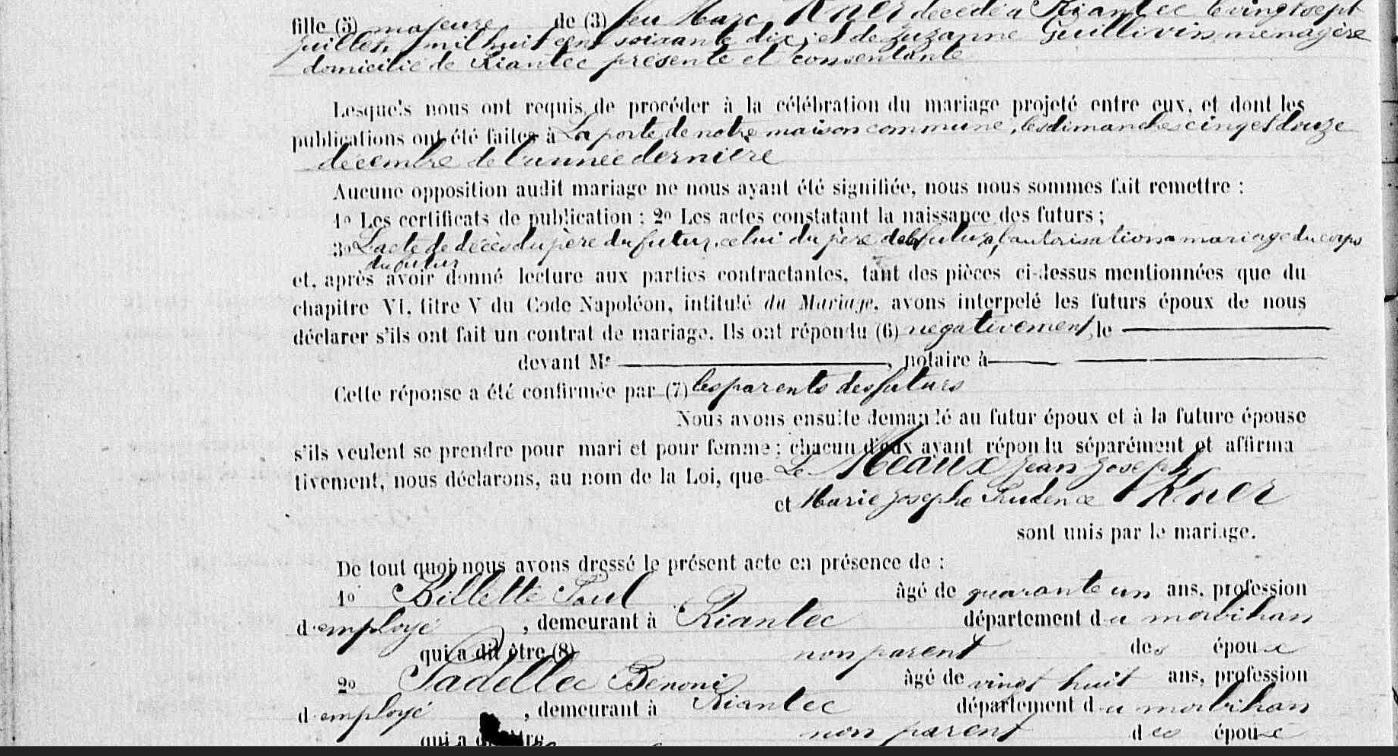 fille (5) majeure de (3) feu Marc Kner décédé à Riantec le vingt sept
juillet mil huit cent soixante dix, et de Suzanne Guillevin ménagère
domicilié de Riantec présente et consentante
Lesquels nous ont requis de procéder à la célébration du mariage projeté entre eux, et dont les
publications ont été faites à La porte de notre maison commune, les dimanches cinq et douze
décembre de l'année dernière
Aucune opposition audit mariage ne nous ayant été signifiée, nous nous sommes fait remettre :
1º Les certificats de publication ; 2º Les actes constatant la naissance des futurs ;
3º L'acte de décès du père du futur, celui du père de la future, l'autorisation a mariage du corps
du futur
et, après avoir donné lecture aux parties contractantes, tant des pièces ci-dessus mentionnées que du
chapitre VI, titre V du Code Napoléon, intitulé du Mariage, avons interpelé les futurs époux de nous
déclarer s'ils ont fait un contrat de mariage. Ils ont répondu (6) négativement, le
devant Me , notaire à
Cette réponse a été confirmée par (7) les parents des futurs
Nous avons ensuite demandé au futur époux et à la future épouse
s'ils veulent se prendre pour mari et pour femme ; chacun d'eux ayant répondu séparément et affirma
tivement, nous déclarons, au nom de la Loi, que Le Meaux Jean Joseph
et Marie Josephe Prudence Kner
sont unis par le mariage.
De tout quoi nous avons dressé le présent acte en présence de :
1º Billette Paul âgé de quarante un ans, profession
d'employé , demeurant à Riantec département du morbihan
qui a dit être (8) non parent des époux
2º Padellec Benoni âgé de vingt huit ans, profession
d'employé , demeurant à Riantec département du morbihan
qui a dit être non parent des époux